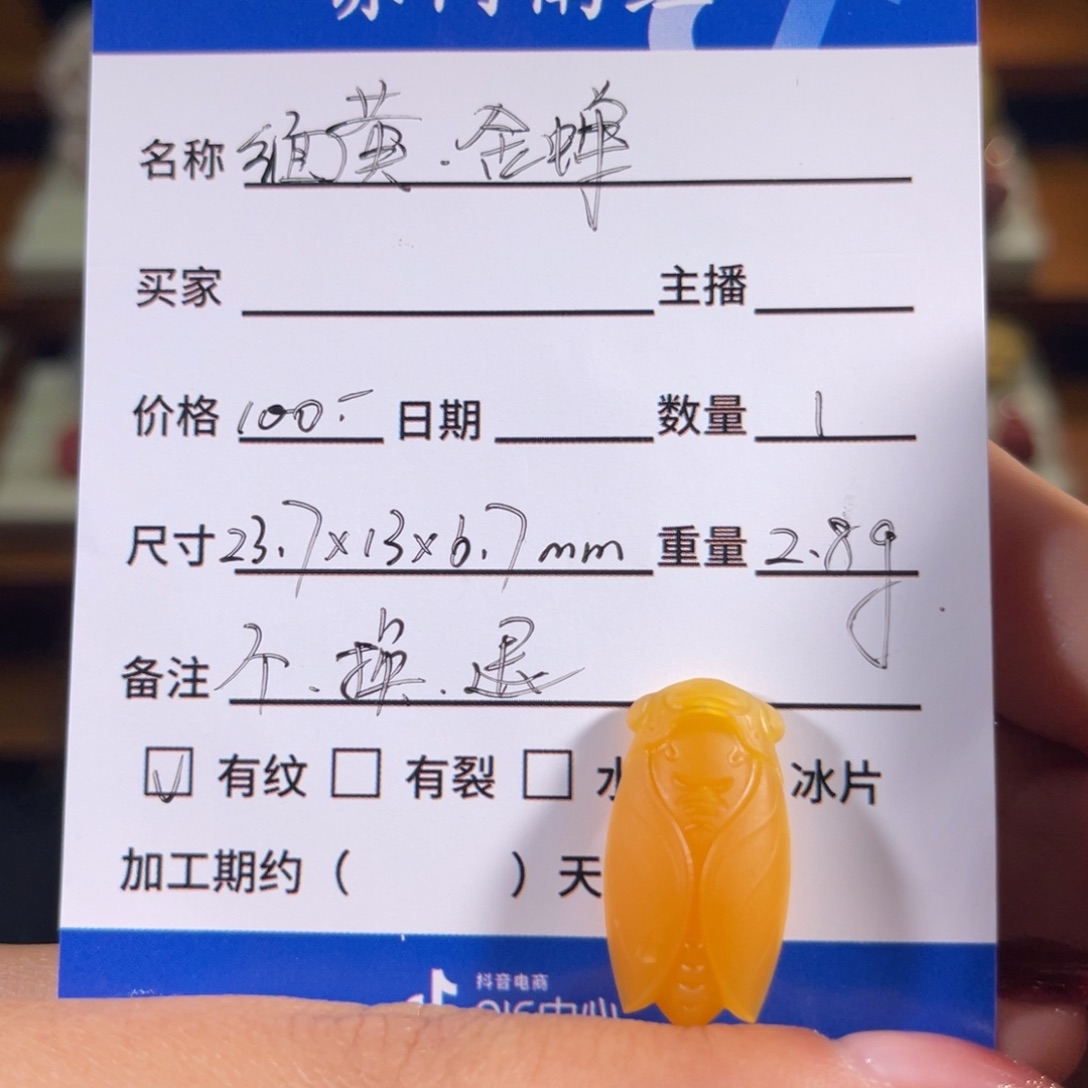 名称 缅黄.金蝉
买家 主播
价格 100.- 日期 数量 1
尺寸 23.7×13×6.7mm 重量 2.8g
备注 不.换.退
有纹 有裂 冰片
加工期约（ ）天
抖音电商